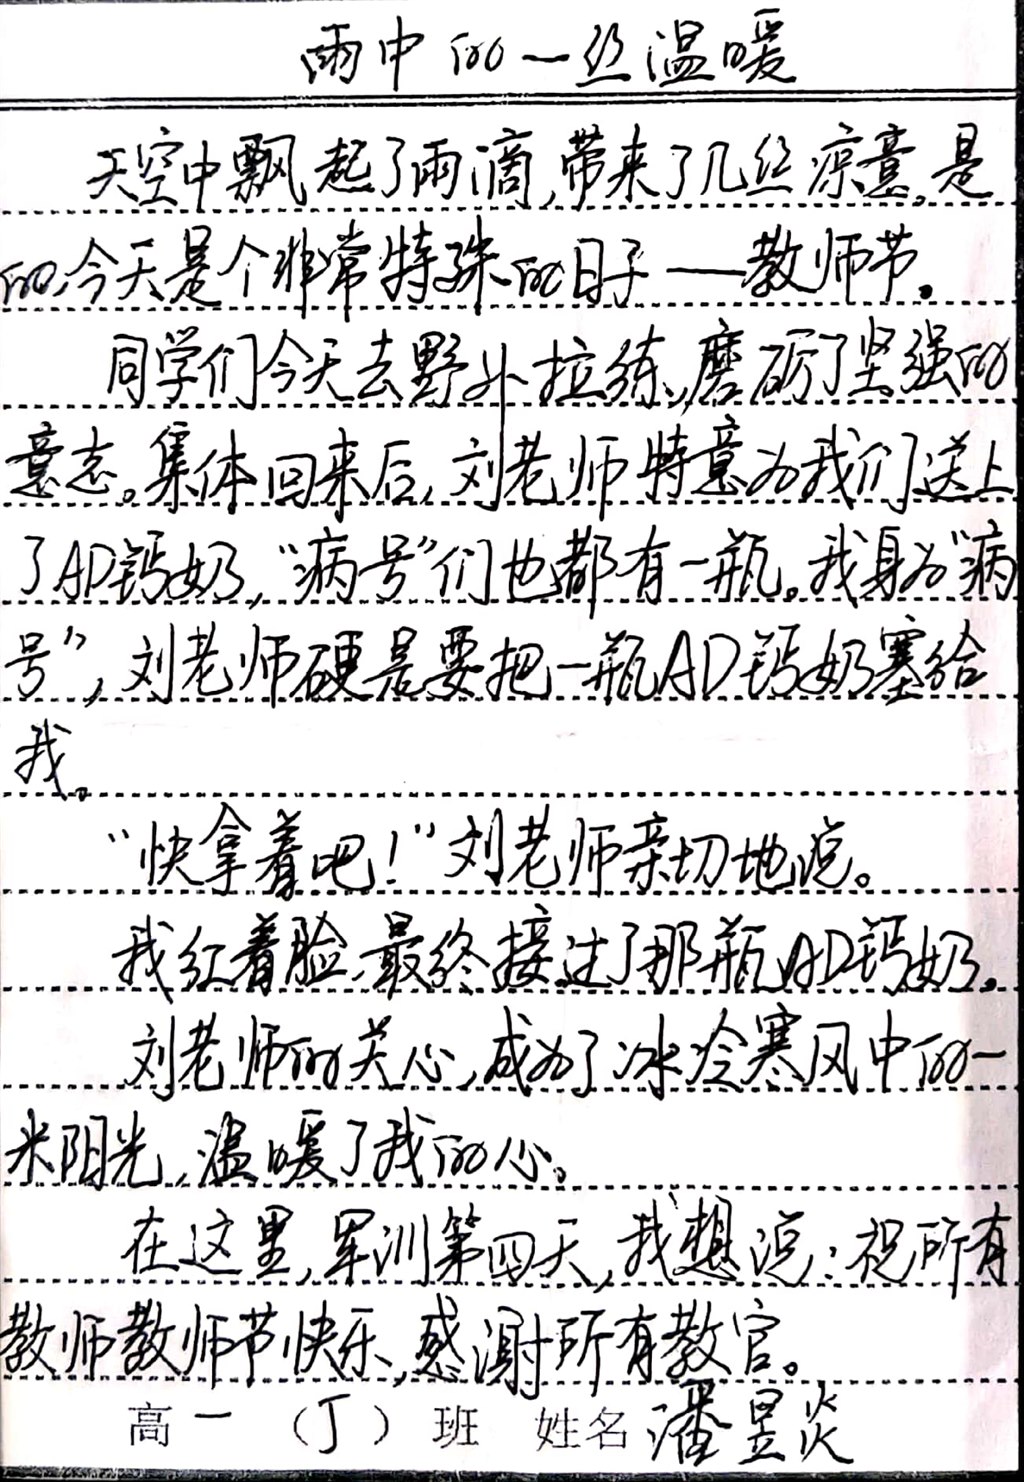 雨中的一丝温暖
天空中飘起了雨滴,带来了几丝凉意,是
的,今天是个非常特殊的日子——教师节。
同学们今天去野外拉练,磨砺了坚强的
意志。集体回来后,刘老师特意为我们送上
了AD钙奶,“病号”们也都有一瓶。我身为“病
号”,刘老师硬是要把一瓶AD钙奶塞给
我。
“快拿着吧!”刘老师亲切地说。
我红着脸,最终接过了那瓶AD钙奶。
刘老师的关心,成为了冰冷寒风中的一
米阳光,温暖了我的心。
在这里,军训第四天,我想说:祝所有
教师教师节快乐,感谢所有教官。
高一(丁)班 姓名潘昱炎